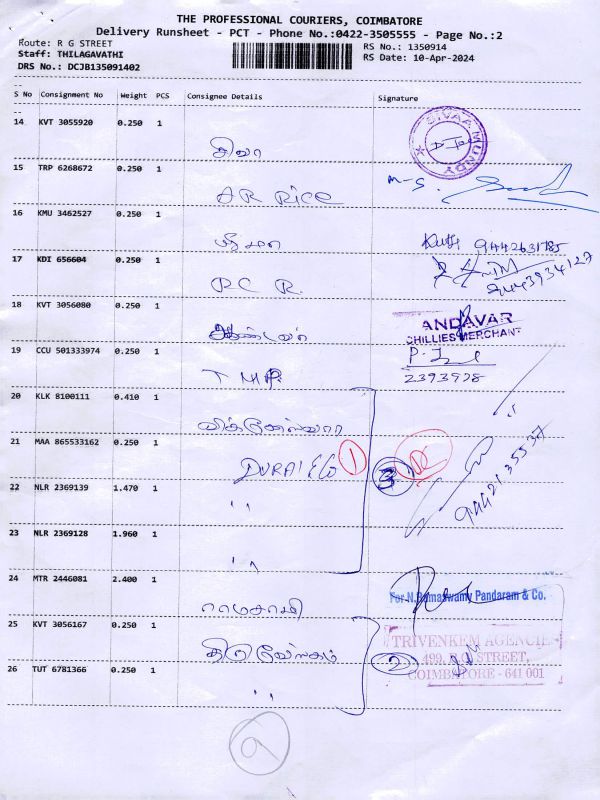 THE PROFESSIONAL COURIERS, COIMBATORE
Delivery Runsheet - PCT - Phone No.:0422-3505555 - Page No.:2
Route: R G STREET
RS No.: 1350914
Staff: THILAGAVATHI
RS Date: 10-Apr-2024
DRS No.: DCJB135091402
S No Consignment No Weight PCS Consignee Details Signature
14 KVT 3055920 0.250 1
சிவா
SIVAA MUNDY
15 TRP 6268672 0.250 1
AR RICE
M-S.
16 KMU 3462527 0.250 1
9442631785
17 KDI 656604 0.250 1
P.C R.
9443934127
18 KVT 3056080 0.250 1
ஆண்டவர்
ANDAVAR
CHILLIES MERCHANT
19 CCU 501333974 0.250 1
TMP
2393928
20 KLK 8100111 0.410 1
விக்னேஸ்வரா
21 MAA 865533162 0.250 1
1
3
9442135537
22 NLR 2369139 1.470 1
"
23 NLR 2369128 1.960 1
"
24 MTR 2446081 2.400 1
ராமசாமி
For N.Ramaswamy Pandaram & Co.
25 KVT 3056167 0.250 1
திருவேங்கம்
2
TRIVENKEM AGENCIE
499, R.G STREET,
COIMBATORE - 641 001
26 TUT 6781366 0.250 1
"
9